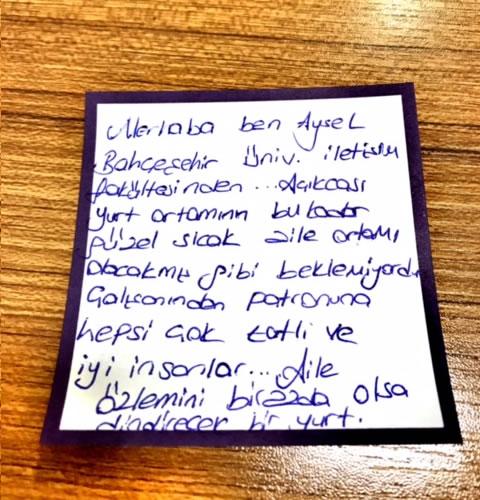 Merhaba ben Aysel
Bahçeşehir Üniv. iletişim
fakültesinden... Açıkcası
yurt ortamının bu kadar
güzel sıcak aile ortamı
olacakmış gibi beklemiyordum
Çalışanından patronuna
hepsi çok tatlı ve
iyi insanlar... Aile
özlemini birazda olsa
dindirecek bir yurt.